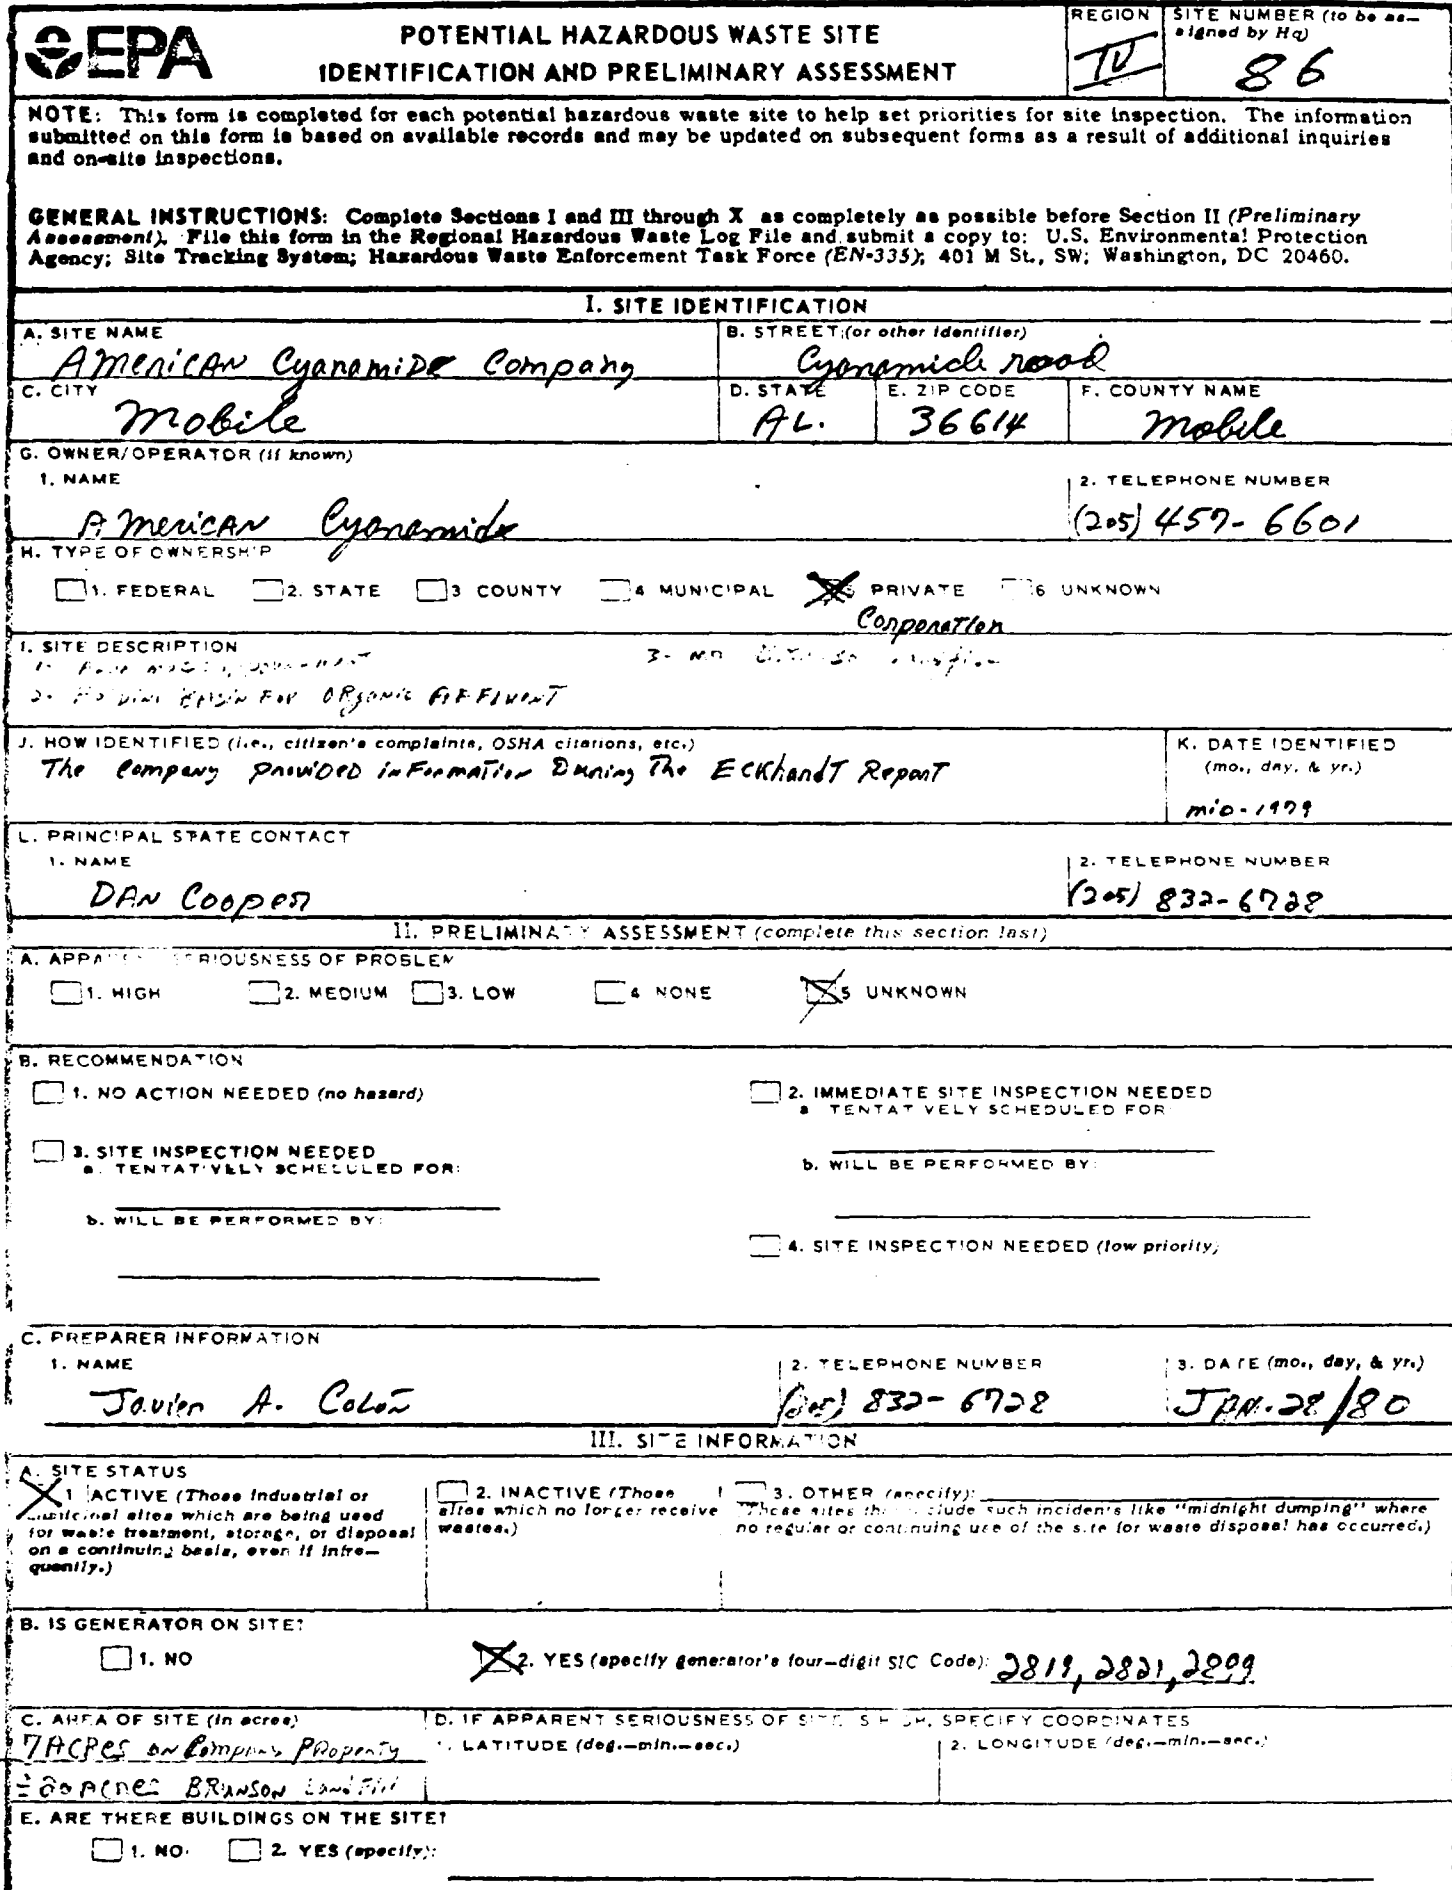 EPA
POTENTIAL HAZARDOUS WASTE SITE
IDENTIFICATION AND PRELIMINARY ASSESSMENT
REGION
IV
SITE NUMBER (to be as-
signed by Hq)
86
NOTE: This form is completed for each potential hazardous waste site to help set priorities for site inspection. The information
submitted on this form is based on available records and may be updated on subsequent forms as a result of additional inquiries
and on-site inspections.
GENERAL INSTRUCTIONS: Complete Sections I and III through X as completely as possible before Section II (Preliminary
Assessment). File this form in the Regional Hazardous Waste Log File and submit a copy to: U.S. Environmental Protection
Agency; Site Tracking System; Hazardous Waste Enforcement Task Force (EN-335); 401 M St., SW; Washington, DC 20460.
I. SITE IDENTIFICATION
A. SITE NAME
American Cyanamide Company
B. STREET (or other identifier)
Cyanamide road
C. CITY
Mobile
D. STATE
AL.
E. ZIP CODE
36614
F. COUNTY NAME
Mobile
G. OWNER/OPERATOR (if known)
1. NAME
American Cyanamide
2. TELEPHONE NUMBER
(205) 457-6601
H. TYPE OF OWNERSHIP
1. FEDERAL 2. STATE 3 COUNTY 4 MUNICIPAL 5 PRIVATE 6 UNKNOWN
Corporation
I. SITE DESCRIPTION
1-
3-
2- Basin For Organic Effluent
J. HOW IDENTIFIED (i.e., citizen's complaints, OSHA citations, etc.)
The Company provided information During The Eckhardt Report
K. DATE IDENTIFIED
(mo., day, & yr.)
mid-1979
L. PRINCIPAL STATE CONTACT
1. NAME
DAN Cooper
2. TELEPHONE NUMBER
(205) 832-6728
II. PRELIMINARY ASSESSMENT (complete this section last)
A. APPARENT SERIOUSNESS OF PROBLEM
1. HIGH 2. MEDIUM 3. LOW 4 NONE 5 UNKNOWN
B. RECOMMENDATION
1. NO ACTION NEEDED (no hazard)
2. IMMEDIATE SITE INSPECTION NEEDED
a TENTATIVELY SCHEDULED FOR:
3. SITE INSPECTION NEEDED
a. TENTATIVELY SCHEDULED FOR:
b. WILL BE PERFORMED BY:
b. WILL BE PERFORMED BY:
4. SITE INSPECTION NEEDED (low priority)
C. PREPARER INFORMATION
1. NAME
Javier A. Colón
2. TELEPHONE NUMBER
(205) 832-6728
3. DATE (mo., day, & yr.)
JAN. 28/80
III. SITE INFORMATION
A. SITE STATUS
1 ACTIVE (Those industrial or
municipal sites which are being used
for waste treatment, storage, or disposal
on a continuing basis, even if infre-
quently.)
2. INACTIVE (Those
sites which no longer receive
wastes.)
3. OTHER (specify):
(Those sites that include such incidents like "midnight dumping" where
no regular or continuing use of the site for waste disposal has occurred.)
B. IS GENERATOR ON SITE?
1. NO
2. YES (specify generator's four-digit SIC Code): 2819, 2821, 2899
C. AREA OF SITE (in acres)
7 Acres on Company Property
Acres BRANSON Landfill
D. IF APPARENT SERIOUSNESS OF SITE IS HIGH, SPECIFY COORDINATES
1. LATITUDE (deg.-min.-sec.)
2. LONGITUDE (deg.-min.-sec.)
E. ARE THERE BUILDINGS ON THE SITE?
1. NO. 2. YES (specify):